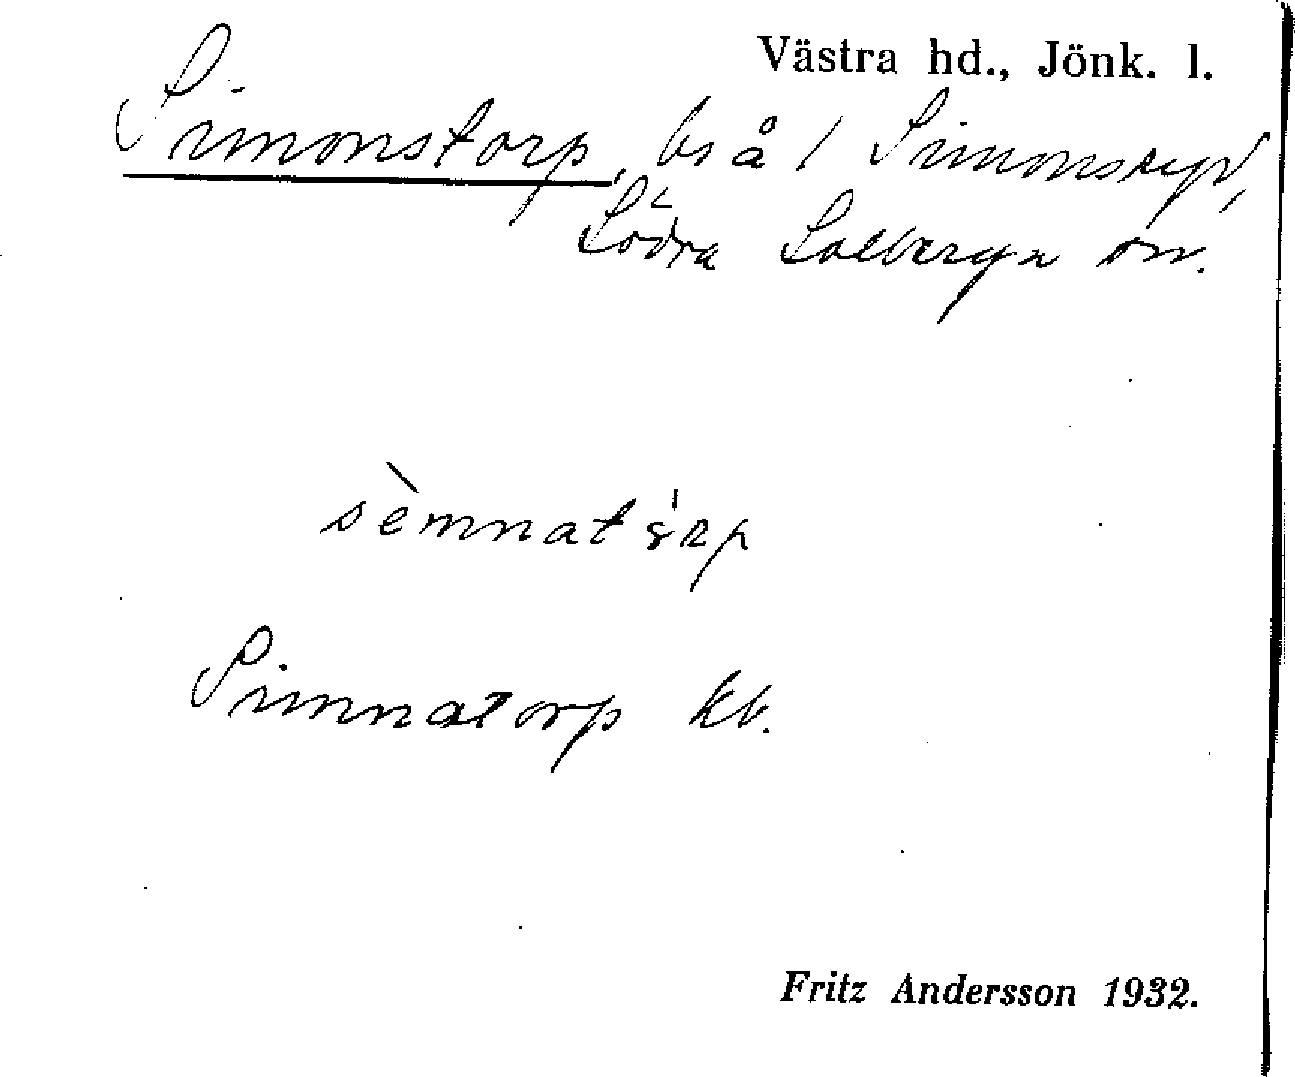 Västra hd., Jönk. l.
Simonstorp, bs å 1 Simonsryd,
Södra Solberga sn.
sèmnatɞ̍rp
Simnatorp kb.
Fritz Andersson 1932.